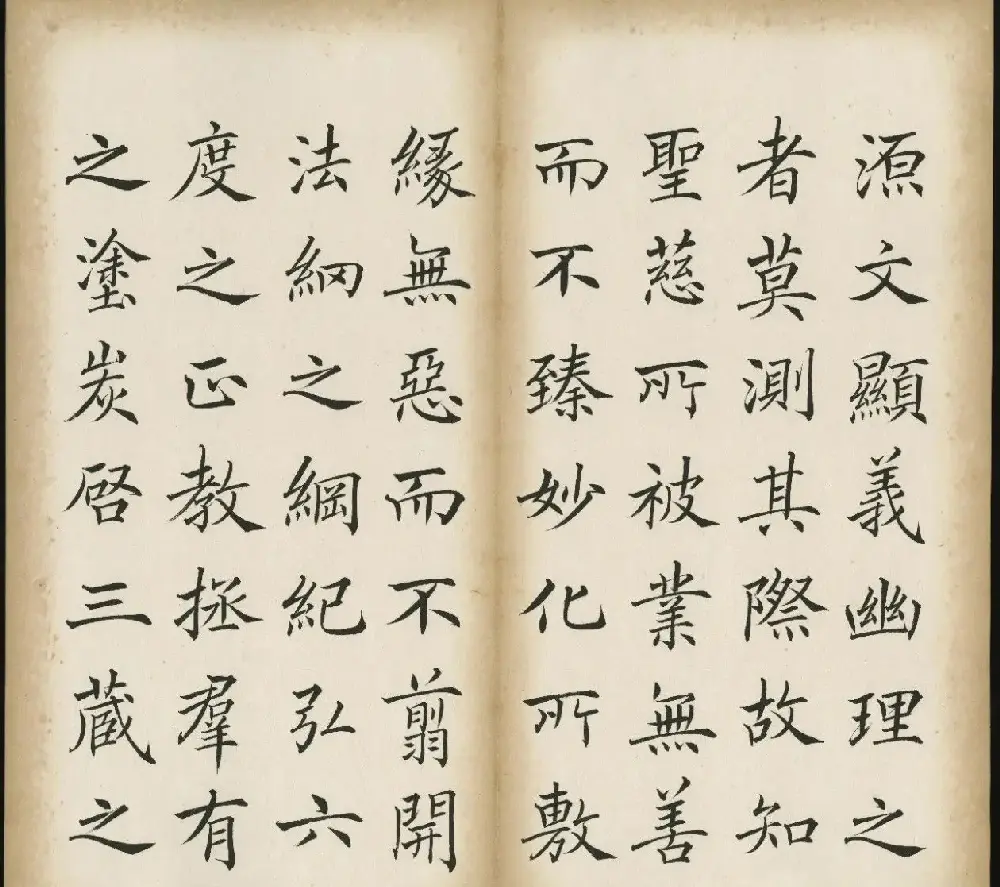 源文顯義幽理之
者莫測其際故知
聖慈所被業無善
而不臻妙化所敷
緣無惡而不翦開
法網之綱紀弘六
度之正教拯羣有
之塗炭啓三藏之